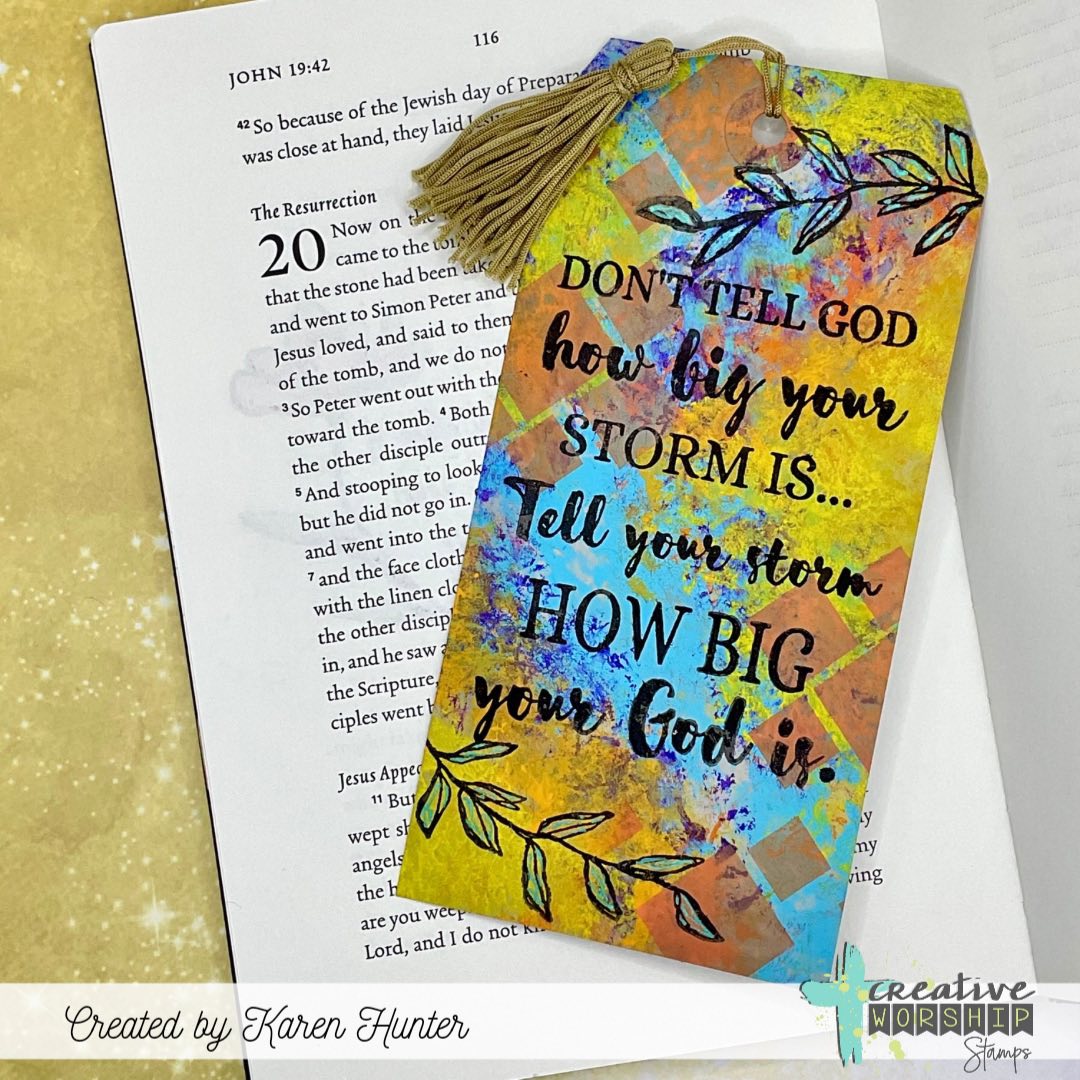 116
JOHN 19:42
42 So because of the Jewish day of Prepara
was close at hand, they laid
The Resurrection
20 Now on the
came to the
that the stone had been
and went to Simon Peter and
Jesus loved, and said to them
of the tomb, and we do not
3 So Peter went out with the
toward the tomb. 4 Both
the other disciple outr
5 And stooping to look
but he did not go in.
and went into the t
7 and the face cloth
with the linen clo
the other discip
in, and he saw a
the Scripture,
ciples went b
Jesus Appe
11 Bu
wept s
angels
the h
are you weep
Lord, and I do not kn
my
ving
DON'T TELL GOD
how big your
STORM IS...
Tell your storm
HOW BIG
your God is.
Created by Karen Hunter
creative
WORSHIP
Stamps